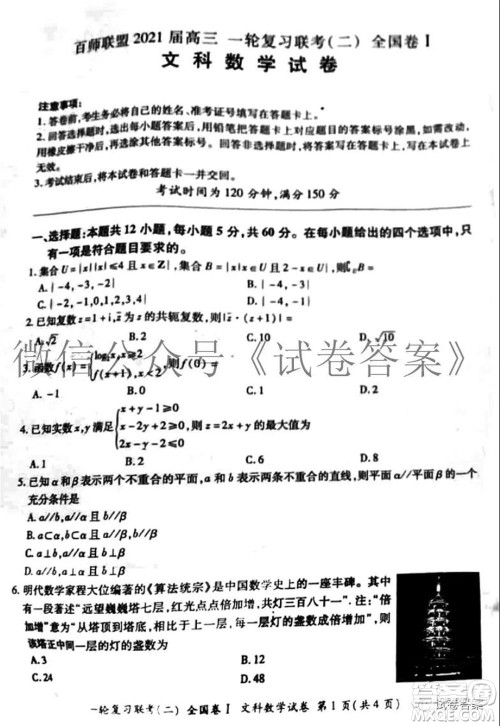 百师联盟2021届高三 一轮复习联考(二) 全国卷Ⅰ
文科数学试卷
注意事项:
1. 答卷前,考生务必将自己的姓名、准考证号填写在答题卡上。
2. 回答选择题时,选出每小题答案后,用铅笔把答题卡上对应题目的答案标号涂黑,如需改动,
用橡皮擦干净后,再选涂其他答案标号。回答非选择题时,将答案写在答题卡上,写在本试卷上
无效。
3. 考试结束后,将本试卷和答题卡一并交回。
考试时间为120分钟,满分150分
一、选择题:本题共12小题,每小题5分,共60分。在每小题给出的四个选项中,只
有一项是符合题目要求的。
1. 集合U={x||x|≤4且x∈Z},集合B={x|x∈U且2-x∈U},则∁UB=
A. {-4,-3,-2} B. {-4,-3}
C. {-2,-1,0,1,2,3,4} D. {-4,-1}
2. 已知复数z=1+i,z̄为z的共轭复数,则|z̄·(z+1)|=
A. √2 B. 2 C. 4 D. √10
3. 函数f(x)={ x≥2 f(x+2), 则f(0)=
A. -1 B. 0 C. 1 D. 2
4. 已知实数x,y满足{x+y-1≥0 x-2y+2≥0 2x-y-2≤0,则z=2x+y的最大值为
A. 1 B. 2 C. 7 D. 8
5. 已知α和β表示两个不重合的平面,a和b表示两条不重合的直线,则平面α//平面β的一个
充分条件是
A. a//b,a//α且b//β
B. a⊂α,b⊂α且a//β,b//β
C. a⊥b,a//α且b⊥β
D. a//b,a⊥α且b⊥β
6. 明代数学家程大位编著的《算法统宗》是中国数学史上的一座丰碑。其中
有一段著述“远望巍巍塔七层,红光点点倍加增,共灯三百八十一”。注:“倍
加增”意为“从塔顶到塔底,相比于上一层,每一层灯的盏数成倍增加”,则
该塔正中间一层的灯的盏数为
A. 3 B. 12
C. 24 D. 48
一轮复习联考(二) 全国卷Ⅰ 文科数学试卷 第1页(共4页)
微信公众号《试卷答案》
试卷答案